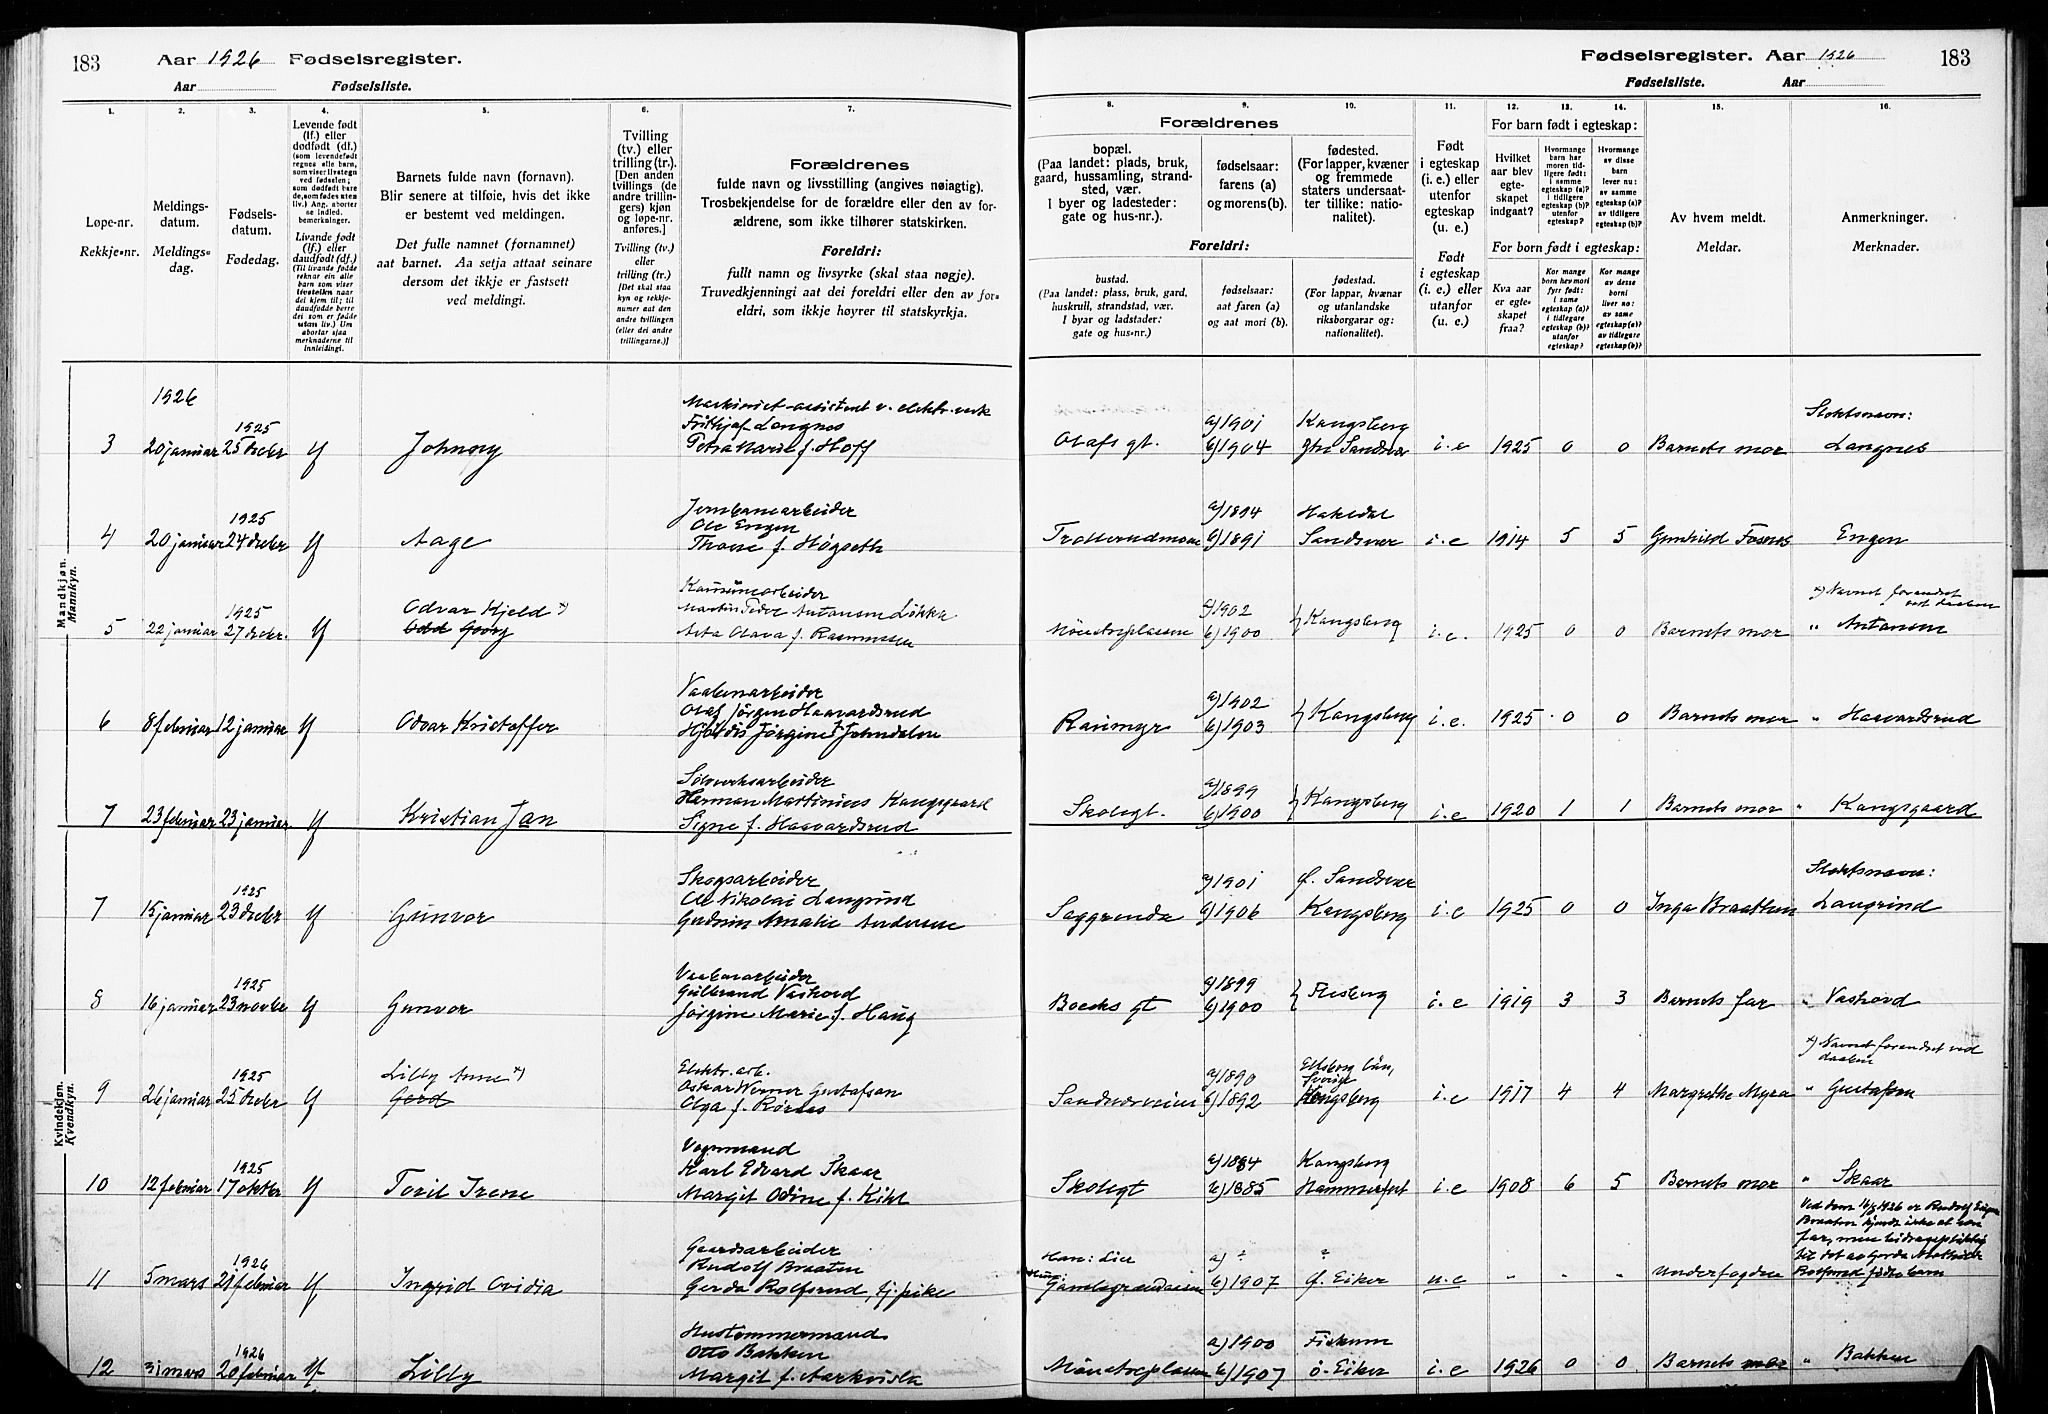 183
Aar 1926 Fødselsregister.
Aar Fødselsliste.
Fødselsregister. Aar 1926
183
Fødselsliste. Aar
1. 2. 3. 4. 5. 6. 7.
8. 9. 10. 11. 12. 13. 14. 15. 16.
Løpe-nr.
Rekkje-nr.
Meldings-
datum.
Meldings-
dag.
Fødsels-
datum.
Fødedag.
Levende født
(lf.) eller
dødfødt (df.)
(som levendefødt
regnes alle barn,
som viser livstegn
ved fødselen;
som dødfødt bare
de, som fødes uten
liv.) Ang. aborter
se indled.
bemerkninger.
Livande fødd
(lf.) eller
daudfødt (df.)
(Til livande fødde
reknar ein alle
barn som viser
livsteikn naar
dei kjem til; til
daudfødde berre
dei som er fødde
utan liv.) Um
abortar sjaa
merknaderne til
innleidingi.
Barnets fulde navn (fornavn).
Blir senere at tilføie, hvis det ikke
er bestemt ved meldingen.
Det fulle namnet (fornamnet)
aat barnet. Aa setja attaat seinare
dersom det ikkje er fastsett
ved meldingi.
Tvilling
(tv.) eller
trilling (tr.).
[Den anden
tvillings (de
andre trillin-
gers) kjøn
og løpe-nr.
anføres.]
Tvilling (tv.)
eller
trilling (tr.)
[Det skal staa
kyn og rekkje-
numer aat den
andre tvillingen
(eller dei andre
trillingarne.)]
Forældrenes
fulde navn og livsstilling (angives nøiagtig).
Trosbekjendelse for de forældre eller den av for-
ældrene, som ikke tilhører statskirken.
Foreldri:
fullt namn og livsyrke (skal staa nøgje).
Truvedkjenningi aat dei foreldri eller den av for-
eldri, som ikkje høyrer til statskyrkja.
Forældrenes
bopæl.
(Paa landet: plads, bruk,
gaard, hussamling, strand-
sted, vær.
I byer og ladesteder:
gate og hus-nr.).
fødselsaar:
farens (a)
og morens (b).
fødested.
(For lapper, kvæner
og fremmede
staters undersaat-
ter tillike: natio-
nalitet).
Foreldri:
bustad.
(Paa landet: plass, bruk, gard,
huskrull, strandstad, vær.
I byar og ladstader:
gate og hus-nr.)
fødselsaar:
aat faren (a)
og aat mori (b).
fødestad.
(For lappar, kvænar
og utanlandske
riksborgarar og:
nationalitet).
Født
i egteskap
(i. e.) eller
utenfor
egteskap
(u. e.)
Født
i egteskap
(i. e.) eller
utanfor
(u. e.)
For barn født i egteskap:
Hvilket
aar blev
egte-
skapet
indgaat?
Hvormange
barn har
moren tid-
ligere født:
i samme
egteskap (a)?
i tidligere
egteskap (b)?
utenfor
egteskap?
Hvormange
av disse
barn
lever nu:
av samme
egteskap (a)?
av tidligere
egteskap (b)?
For born født i egteskap:
Kva aar
er egte-
skapet
fraa?
Kor mange
born hev mori
fyrr født:
i same
egteskap (a)?
i tidlegare
egteskap (b)?
utanfor
egteskap?
Kor mange
av desse
borni
liver no:
av same
egteskap (a)?
av tidlegare
egteskap (b)?
Av hvem meldt.
Meldar.
Anmerkninger.
Merknader.
Mandkjøn.
Mannkyn.
1926
3 20 januar 1925 25 decbr lf Johnny
Maskinist-assistent v. elektr. verk
Frithjof Langnes
Petra Marie f. Hoff
Olafs gt. a) 1901 b) 1904 Kongsberg Ytre Sandsvær i.e 1925 0 0 Barnets mor Slektsnavn: Langnes
4 20 januar 1925 24 decbr lf Aage
Jernbanearbeider
Ole Engen
Thora f. Høgseth
a) 1894 b) 1891 Hakedal Sandsvær i.e 1914 5 5 Gunhild Engen
5 22 januar 1925 27 decbr. lf Odvar Kjeld x)
Odd Georg
Martin Peder Antonsen Løkka
Olava f. Rasmussen
a) 1902 b) 1900 } Kongsberg i.e. 1925 0 0 Barnets mor x) Navnet forandret ved daaben " Antonsen
6 8 februar 12 januar lf Odvar Kristoffer
Vaabenarbeider
Olaf Jørgen Haavardsrud
Hjørdis Jørgine f. Johndalen
Raumyr a) 1902 b) 1903 } Kongsberg i.e. 1925 0 0 Barnets mor " Haavardsrud
7 23 februar 23 januar lf Kristian Jan
Sølvverksarbeider
Herman Martinius Kongsgaard
Signe f. Haavardsrud
Skolegt. a) 1899 b) 1900 } Kongsberg i.e 1920 1 1 Barnets mor " Kongsgaard
Kvindekjøn.
Kvendkyn.
7 15 januar 1925 23 decbr lf Gunvor
Skogsarbeider
Ole Nikolai Langrind
Gudrun Amalie Andersen
Saggrenda a) 1901 b) 1906 Ø. Sandsvær Kongsberg i.e 1925 0 0 Inga Braathen Slektsnavn: Langrind
8 16 januar 1925 23 novbr lf Gunvor
Vaabenarbeider
Gulbrand Vashovd
Jørgine Marie f. Haug
Boecks gt a) 1899 b) 1900 } Flesberg i.e 1919 3 3 Barnets far " Vashovd
9 26 januar 1925 25 decbr lf Lilly Anne x)
Gerd
Elektr. arb.
Oskar Werner Gustafson
Olga f. Rørnes
Sandsværveien a) 1890 b) 1892 Elfsborg län, Sverige Kongsberg i.e 1917 4 4 Margrethe Myra x) Navnet forandret ved daaben " Gustafson
10 12 februar 1925 17 oktbr lf Toril Irene
Vognmand
Karl Edvard Skaar
Margit Odine f. Kihl
Skolegt a) 1884 b) 1885 Kongsberg Hammerfest i.e 1908 6 5 Barnets mor " Skaar
11 5 mars 1926 21 februar lf Ingrid Ovidia
Gaardsarbeider
Rudolf Braaten
Gerda Rolfsrud, tj. pike
Han: Lier
Hun: Gamlegrendaasen a) ? b) 1907 ? Ø. Eiker u.e " " " Underfogden
Ved dom 16/8 1926 er Rudolf
Braaten kjendt ikke at være
far, men bidragspliktig
til det av Gerda
Rolfsrud fødte barn
12 31 mars 1926 20 februar lf Lilly
Hustømmermand
Otto Bakken
Margit f. Aarkvisla
a) 1900 b) 1907 Fiskum ø. Eiker i.e 1926 0 0 Barnets mor " Bakken